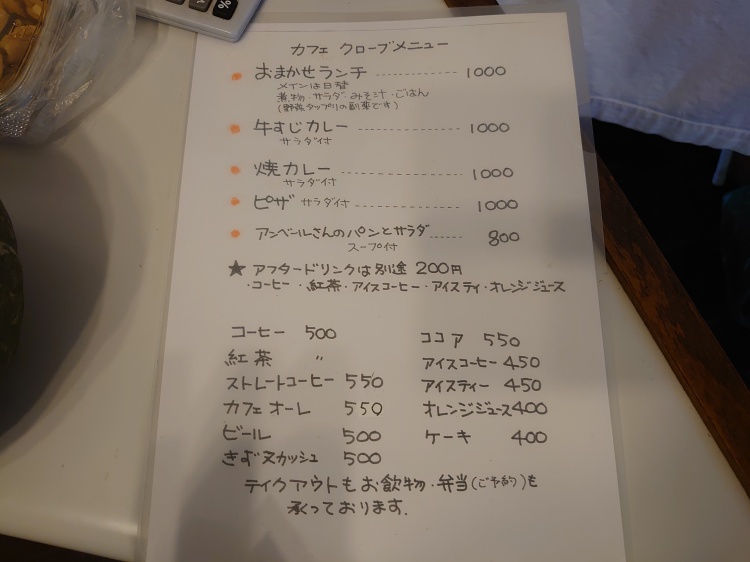 カフェ クローブメニュー
おまかせランチ 1000
メインは日替
煮物・サラダ・みそ汁・ごはん
(野菜タップリの副菜です)
牛すじカレー 1000
サラダ付
焼カレー 1000
サラダ付
ピザ サラダ付 1000
アンベールさんのパンとサラダ 800
スープ付
★ アフタードリンクは別途 200円
・コーヒー・紅茶・アイスコーヒー・アイスティ・オレンジジュース
コーヒー 500
紅茶 〃
ストレートコーヒー 550
カフェオーレ 550
ビール 500
きずヌカッシュ 500
ココア 550
アイスコーヒー 450
アイスティー 450
オレンジジュース 400
ケーキ 400
テイクアウトもお飲物・弁当(ご予約)も
承っております.
%